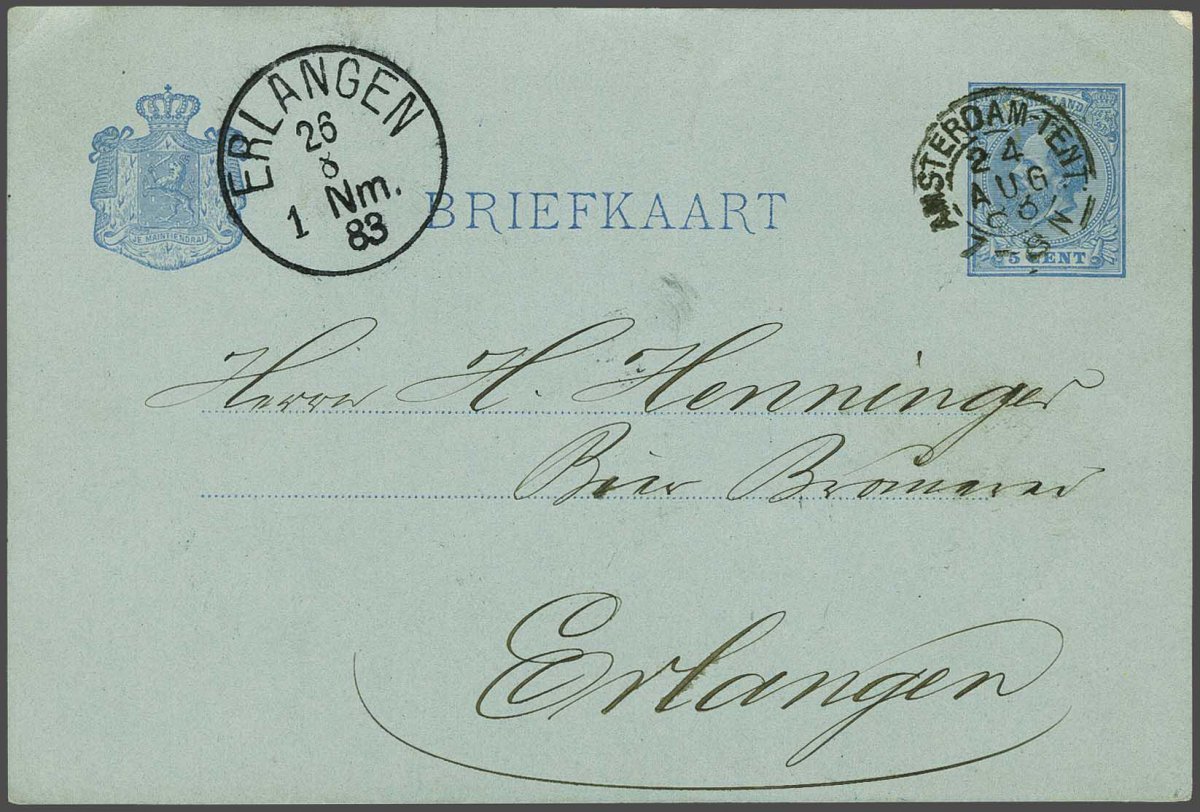 JE MAINTIENDRAI
ERLANGEN
26
8
1 Nm.
83
BRIEFKAART
AMSTERDAM-TENT.
24
AUG
5 CENT
Herrn H. Henninger
Bier Brauerei
Erlangen